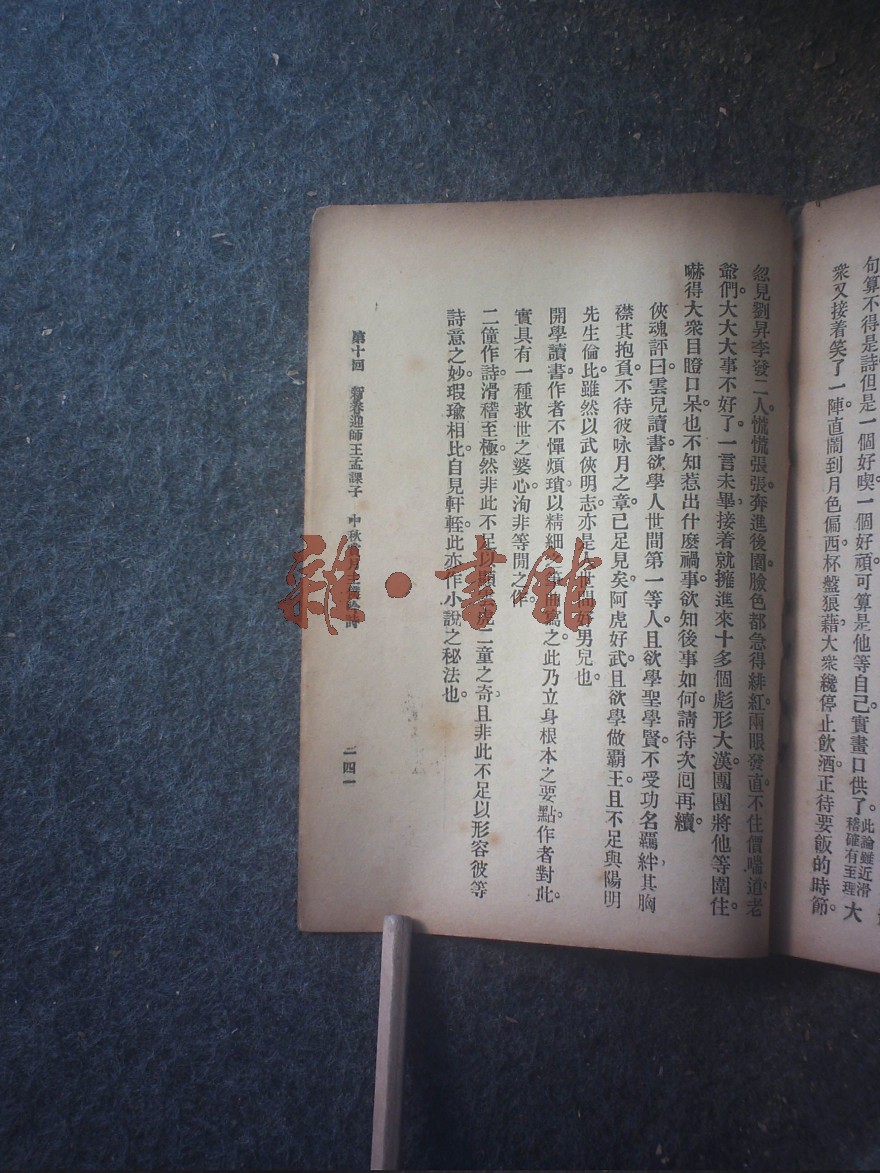 句算不得是詩但是一個好喫一個好頑可算是他等自己實畫口供了。此論雖近滑稽確有至理大
衆又接着笑了一陣直鬧到月色偏西杯盤狼藉大衆纔停止飲酒正待要飯的時節。
忽見劉昇李發二人慌慌張張奔進後園臉色都急得緋紅兩眼發直不住價喘道老
爺們大大大事不好了。一言未畢接着就擁進來十多個彪形大漢團團將他等圍住
嚇得大衆目瞪口呆也不知惹出什麽禍事欲知後事如何請待次囘再續。
俠魂評曰雲兒讀書欲學人世間第一等人且欲學聖學賢不受功名羈絆其胸
襟其抱負不待彼咏月之章已足見矣阿虎好武且欲學做霸王且不足與陽明
先生倫比雖然以武俠明志亦是世間好男兒也。
開學讀書作者不憚煩瑣以精細之筆冊寫之此乃立身根本之要點作者對此
實具有一種救世之婆心洵非等閒之作。
二僮作詩滑稽至極然非此不足以顯虎二童之奇且非此不足以形容彼等
詩意之妙瑕瑜相比自見軒輊此亦作小說之秘法也。
第十囘 新春迎師王孟課子 中秋賞月主僕吟詩
二四一
雜·書館